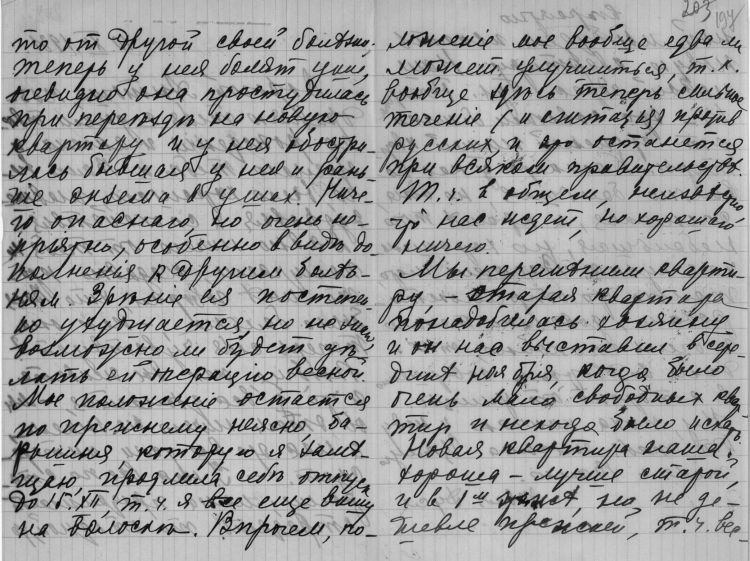 то от другой своей болѣзни.
Теперь у нея болят уши,
очевидно она простудилась
при переѣзде на новую
квартиру и у нея обостри-
лась бывшая у нея и рань-
ше экзема в ушах. Ниче-
го опаснаго, но очень не-
прiятно, особенно в видѣ до-
полненiя к другим болѣз-
ням. Зрѣнiе ея постепен-
но ухудшается, но не знаю,
возможно ли будет сдѣ-
лать ей операцiю весной
Мое положенiе остается
по прежнему неясно, ба-
рышня которую я замѣ-
щаю, продлила себѣ отпуск
до 15.XII, т.ч. я все еще вишу
на волоскѣ. Впрочем, по-
203
197
ложенiе мое вообще едва ли
может улучшиться, т.к.
вообще здѣсь теперь сильное
теченiе (и считая) против
русских, и это останется
при всяком правительствѣ.
Т.ч. в общем, неизвѣстно
что нас ждет, но хорошаго
ничего.
Мы перемѣнили кварти-
ру, – старая квартира
понадобилась хозяину
и он нас выставил в сере-
динѣ ноября, когда было
очень мало свободных квар-
тир и некогда было искать.
Новая квартира наша
хороша – лучше старой,
и в 1ом но не де-
шевле прежней, т.ч. все-